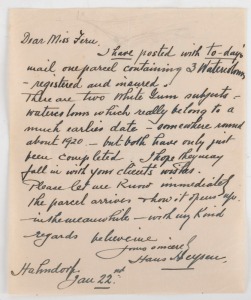 Dear Miss Fern
I have posted with to-day's
mail one parcel containing 3 Watercolours
- registered and insured.
There are two White Gum subjects -
watercolours which really belong to a
much earlier date - somewhere round
about 1920 - but both have only just
been completed I hope they may
fall in with your clients wishes.
Please let me know immediately
the parcel arrives - how it opens up
- in the meanwhile - with my kind
regards believe me
yours sincerely
Hans Heysen
Hahndorf
Jan 22nd